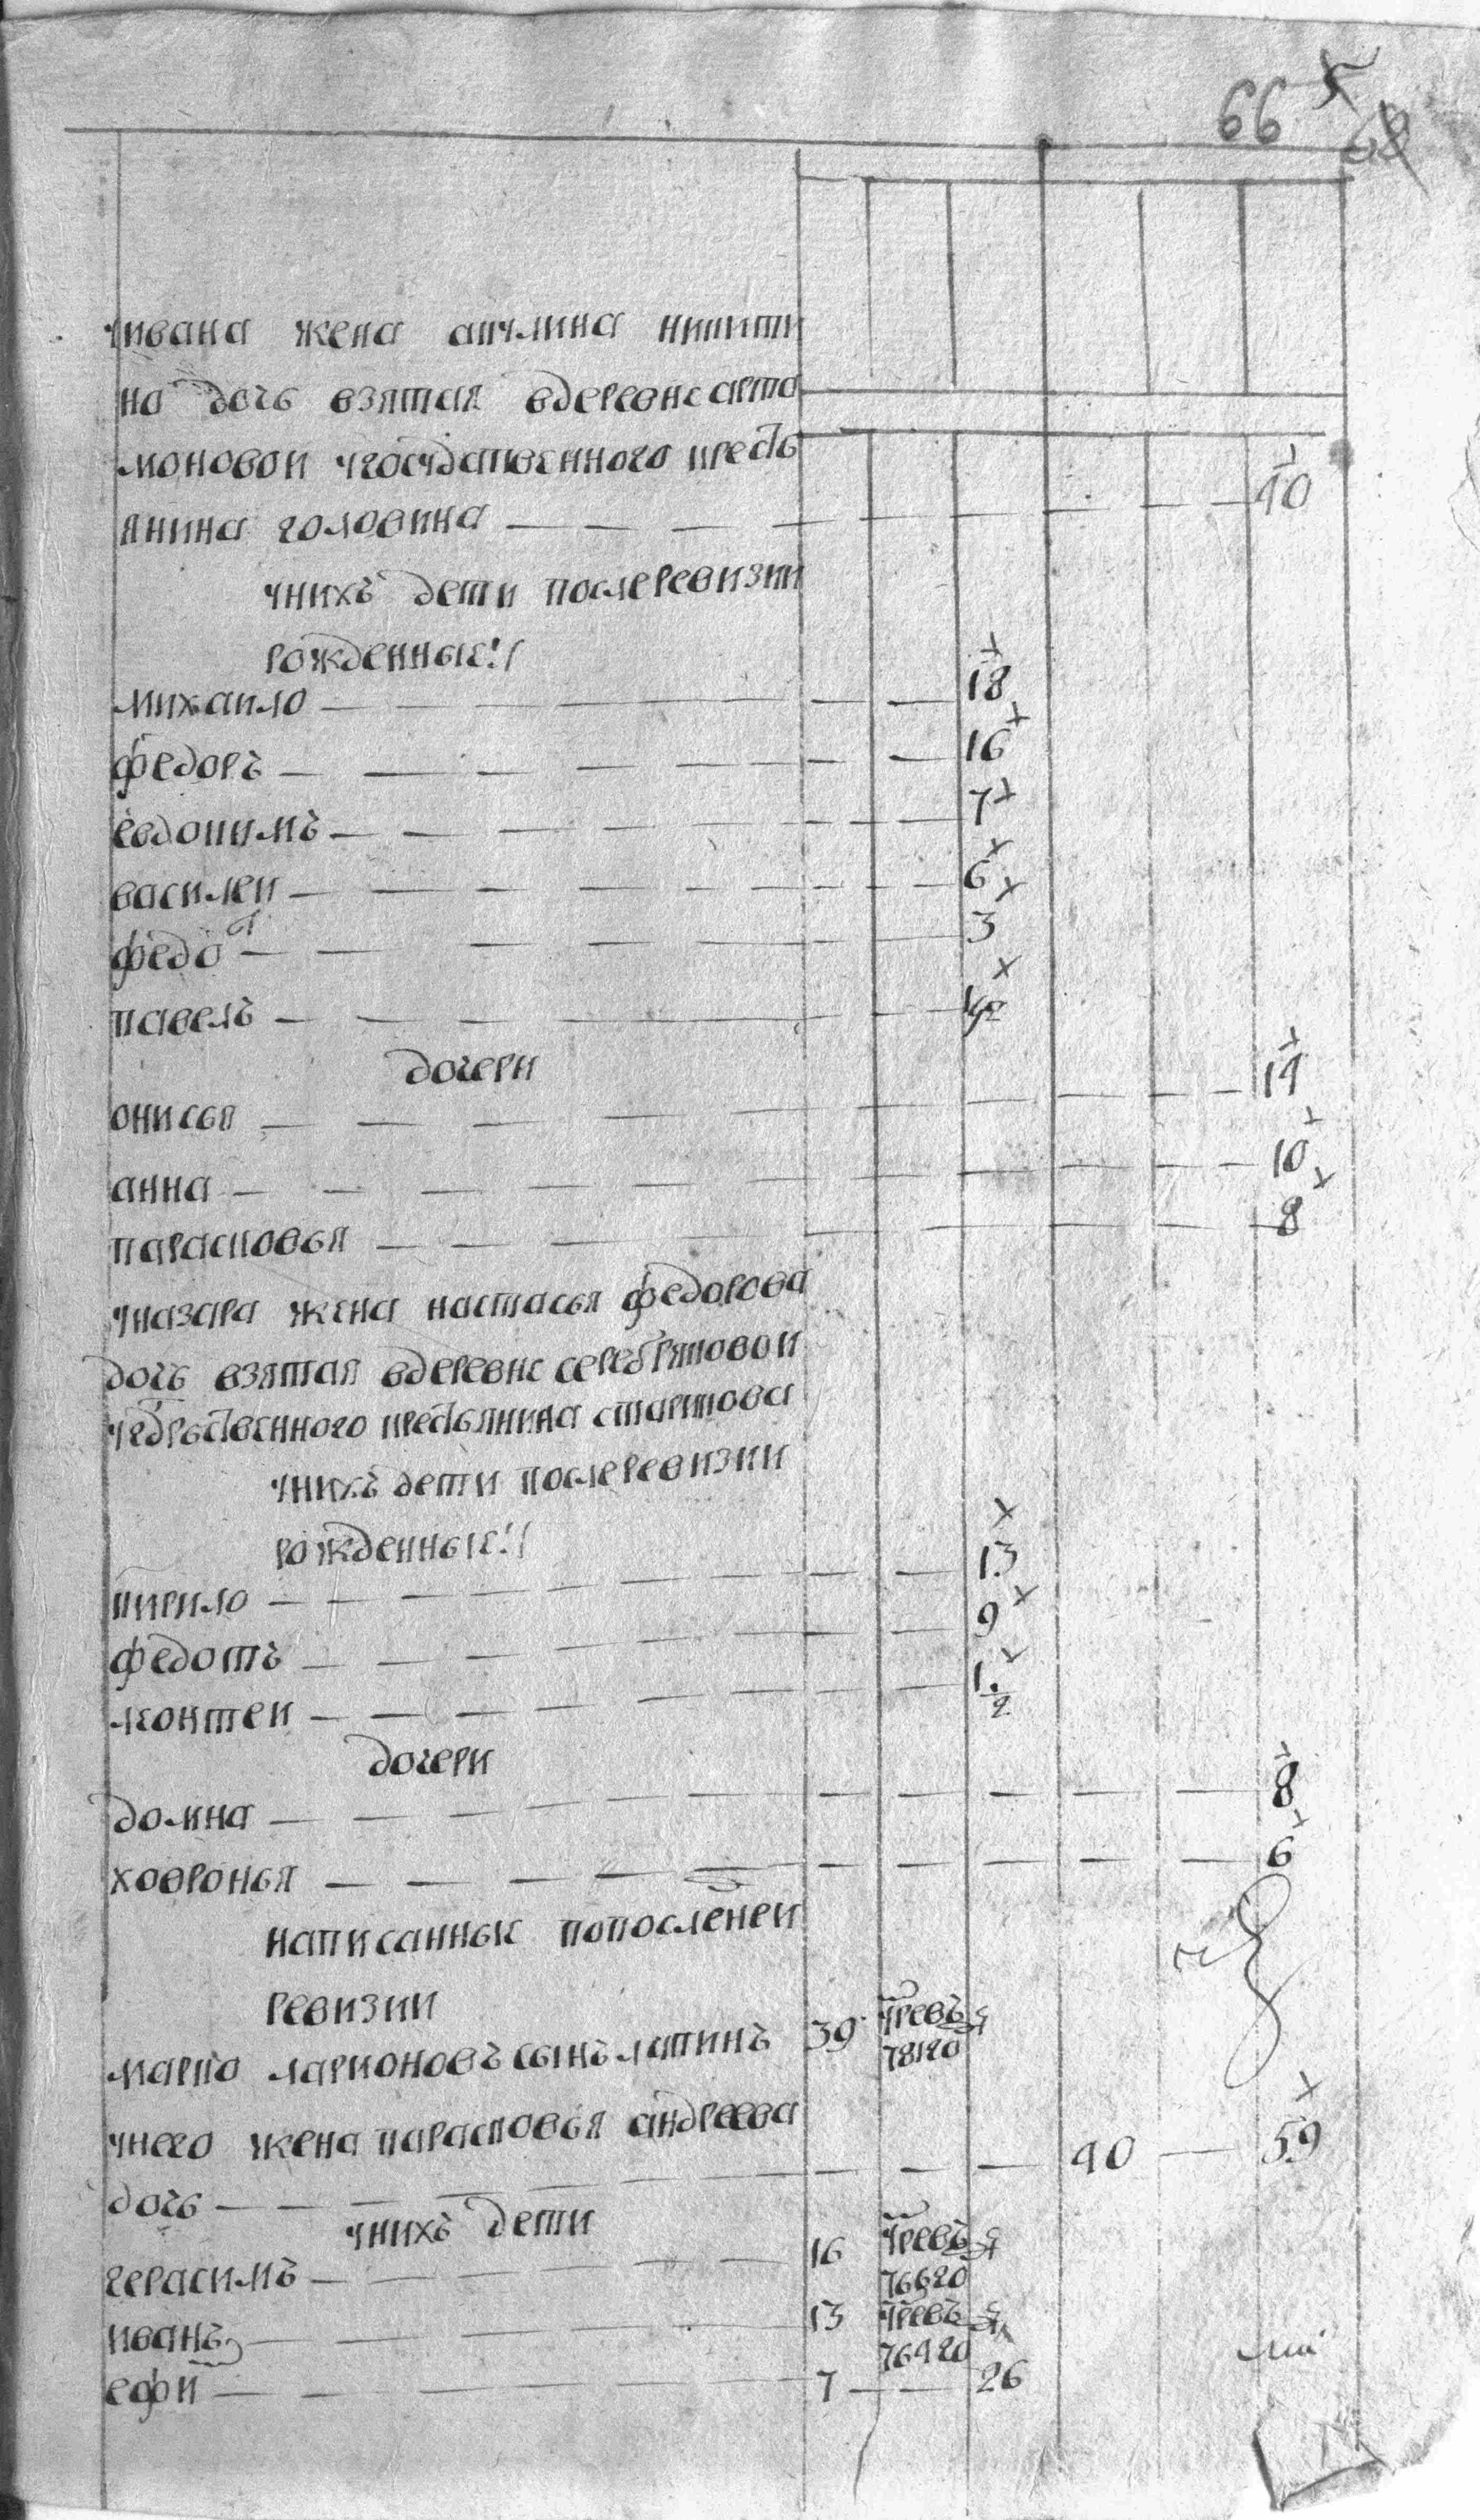 66
68
уивана жена акулина никити
на дочь взятая вдеревне арта
моновои угосударственного кресть
янина головина — 40
уних дети послеревизии
рожденные://
михаило — 18
федоръ — 16
евдокимъ — 7
василеи — 6
федот — 3
павелъ — 1/2
дочери
онисья — 14
анна — 10
парасковья — 8
уназара жена настасья федорова
дочь взятая вдеревне серебряковои
угдрственного крестьянина старикова
унихъ дети послеревизии
рожденные://
кирило — 13
федотъ — 9
леонтеи — 1 1/2
дочери
домна — 8
ховронья — 6
написанные попоследнеи
ревизии
марко ларионовъ сынъ лапинъ 39
781 го
унего жена парасковья андреева
дочь — 40 — 59
унихъ дети
герасимъ — 16
766 го
иванъ — 13
764 го
ефи — 7 — 26